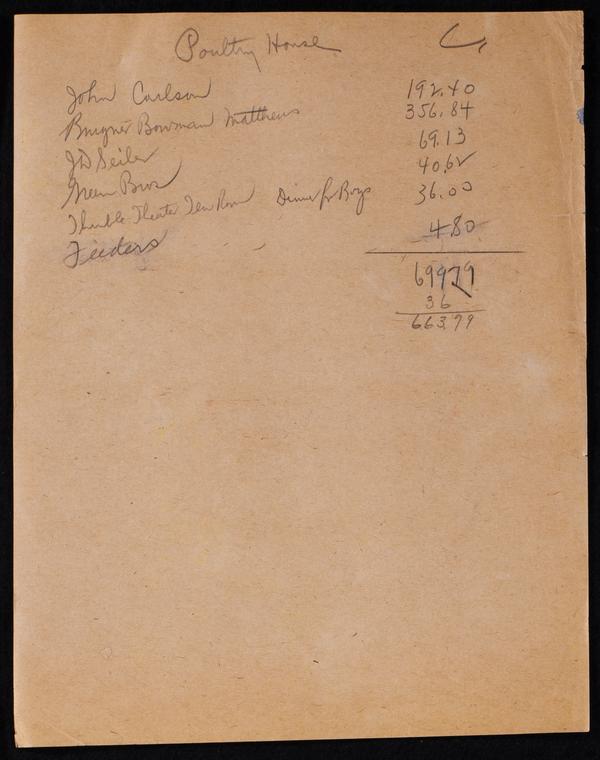 Poultry House C,
John Carlson 192.40
Bowman Matthews 356.84
JD Seiler 69.13
Green Bros 40.62
Thimble Theater Tea Room Dinner for Boys 36.00
Feeders 4.80
699.79
36
663.79